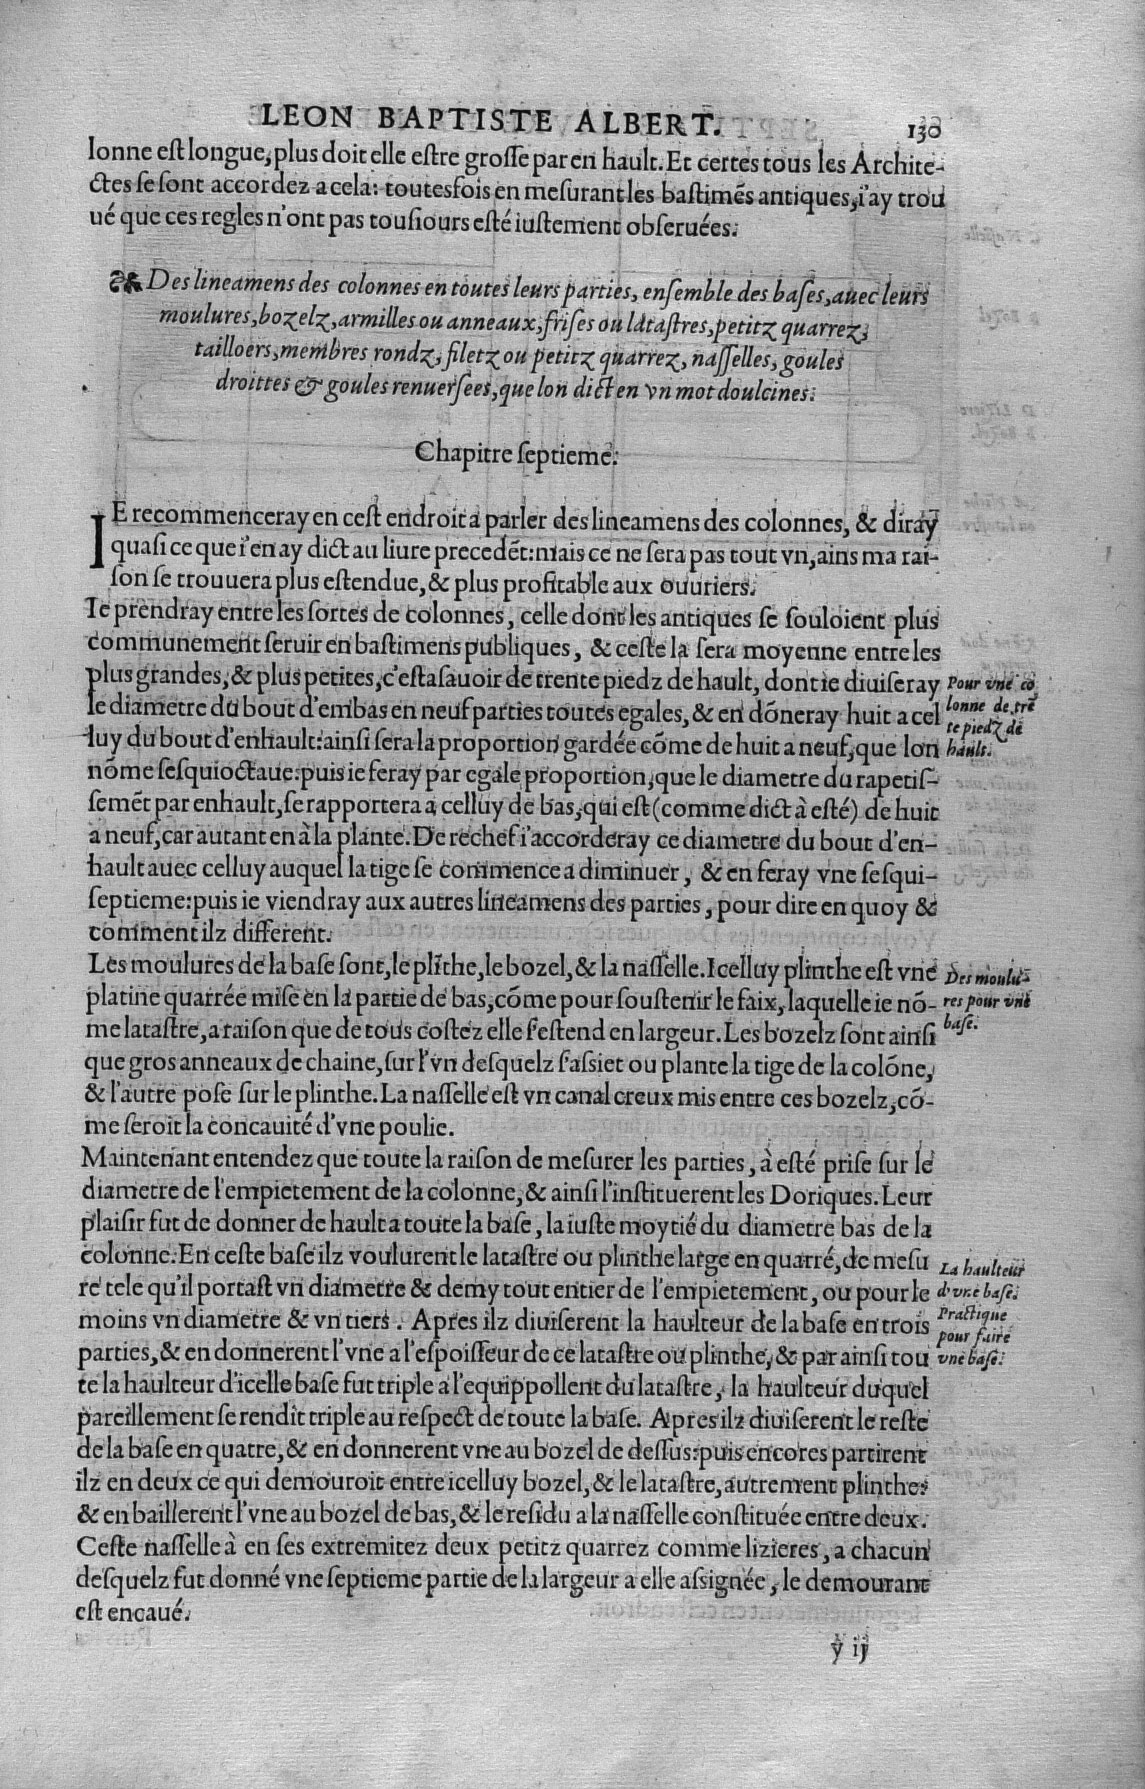 LEON BAPTISTE ALBERT. 130
lonne est longue, plus doit elle estre grosse par en hault. Et certes tous les Archite-
ctes se sont accordez a cela: toutesfois en mesurant les bastimẽs antiques, i'ay trou
ué que ces regles n'ont pas tousiours esté iustement obseruées.
Des lineamens des colonnes en toutes leurs parties, ensemble des bases, auec leurs
moulures, bozelz, armilles ou anneaux, frises ou latastres, petitz quarrez,
tailloers, membres rondz, filetz ou petitz quarrez, nasselles, goules
droittes & goules renuersees, que lon dict en vn mot doulcines.
Chapitre septieme.
IE recommenceray en cest endroit a parler des lineamens des colonnes, & diray
quasi ce que i'en ay dict au liure precedẽt: mais ce ne sera pas tout vn, ains ma rai-
son se trouuera plus estendue, & plus profitable aux ouuriers.
Ie prendray entre les sortes de colonnes, celle dont les antiques se souloient plus
communement seruir en bastimens publiques, & ceste la sera moyenne entre les
plus grandes, & plus petites, c'est asauoir de trente piedz de hault, dont ie diuiseray
le diametre du bout d'embas en neuf parties toutes egales, & en dõneray huit a cel
luy du bout d'enhault: ainsi sera la proportion gardée cõme de huit a neuf, que lon
nõme sesquioctaue: puis ie feray par egale proportion, que le diametre du rapetis-
semẽt par enhault, se rapportera a celluy de bas, qui est (comme dict à esté) de huit
a neuf, car autant en à la plante. De rechef i'accorderay ce diametre du bout d'en-
hault auec celluy auquel la tige se commence a diminuer, & en feray vne sesqui-
septieme: puis ie viendray aux autres lineamens des parties, pour dire en quoy &
comment ilz different.
Pour vne co
lonne de trẽ
te piedz de
hault.
Les moulures de la base sont, le plĩthe, le bozel, & la nasselle. Icelluy plinthe est vne
platine quarrée mise en la partie de bas, cõme pour soustenir le faix, laquelle ie nõ-
me latastre, a raison que de tous costez elle s'estend en largeur. Les bozelz sont ainsi
que gros anneaux de chaine, sur l'vn desquelz s'assiet ou plante la tige de la colõne,
& l'autre pose sur le plinthe. La nasselle est vn canal creux mis entre ces bozelz, cõ-
me seroit la concauité d'vne poulie.
Des moulu-
res pour vne
base.
Maintenant entendez que toute la raison de mesurer les parties, à esté prise sur le
diametre de l'empietement de la colonne, & ainsi l'instituerent les Doriques. Leur
plaisir fut de donner de hault a toute la base, la iuste moytié du diametre bas de la
colonne. En ceste base ilz voulurent le latastre ou plinthe large en quarré, de mesu
re tele qu'il portast vn diametre & demy tout entier de l'empietement, ou pour le
moins vn diametre & vn tiers. Apres ilz diuiserent la haulteur de la base en trois
parties, & en donnerent l'vne a l'espoisseur de ce latastre ou plinthe, & par ainsi tou
te la haulteur d'icelle base fut triple a l'equippollent du latastre, la haulteur duquel
pareillement se rendit triple au respect de toute la base. Apres ilz diuiserent le reste
de la base en quatre, & en donnerent vne au bozel de dessus: puis encores partirent
ilz en deux ce qui demouroit entre icelluy bozel, & le latastre, autrement plinthe:
& en baillerent l'vne au bozel de bas, & le residu a la nasselle constituée entre deux.
Ceste nasselle à en ses extremitez deux petitz quarrez comme lizieres, a chacun
desquelz fut donné vne septieme partie de la largeur a elle assignée, le demourant
est encaué.
La haulteur
d'vne base.
Practique
pour faire
vne base.
y ij